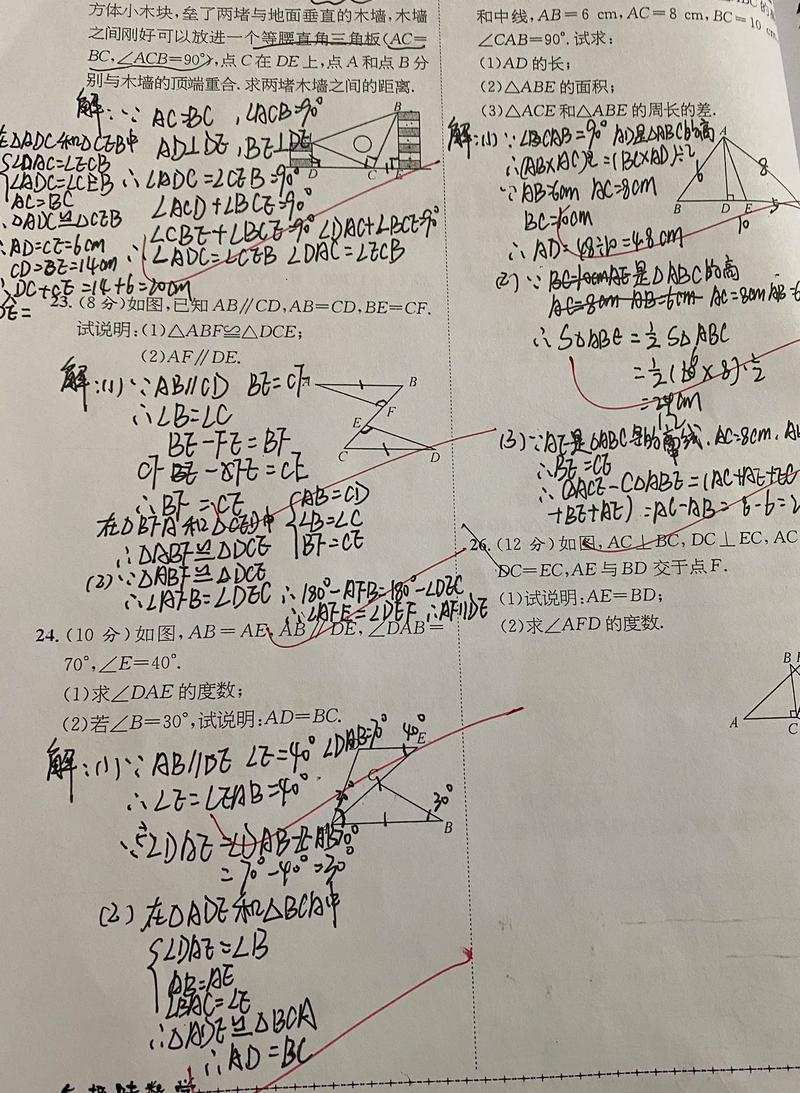 方体小木块,垒了两堵与地面垂直的木墙,木墙
之间刚好可以放进一个等腰直角三角板(AC=
BC,∠ACB=90°),点C在DE上,点A和点B分
别与木墙的顶端重合.求两堵木墙之间的距离.
解:∵ AC=BC,∠ACB=90°
AD⊥DE,BE⊥DE
∴∠ADC=∠CEB=90°
∠ACD+∠BCE=90°
∠CBE+∠BCE=90° ∠DAC+∠BCE=90°
∴∠ADC=∠CEB ∠DAC=∠ECB
在△ADC和△CEB中
∠DAC=∠ECB
∠ADC=∠CEB
AC=BC
△ADC≌△CEB
∴AD=CE=6cm
CD=BE=14cm
∴DC+CE=14+6=20cm
B
D
C
E
23.(8分)如图,已知AB∥CD,AB=CD,BE=CF.
试说明:(1)△ABF≌△DCE;
(2)AF∥DE.
解:(1)∵AB∥CD BE=CF
∴∠B=∠C
BE-FE=BF
CF-FE=CE
∴BF=CE
在△BFA和△CED中
AB=CD
∠B=∠C
BF=CE
∴△ABF≌△DCE
(2)∵△ABF≌△DCE
∴∠AFB=∠DEC ∴180°-AFB=180°-∠DEC
∴∠AFE=∠DEF ∴AF∥DE
B
F
E
C
D
24.(10分)如图,AB=AE,AB∥DE,∠DAB=
70°,∠E=40°.
(1)求∠DAE的度数;
(2)若∠B=30°,试说明:AD=BC.
解:(1)∵AB∥DE ∠E=40° ∠DAB=70°
∴∠E=∠EAB=40°
=70°-40°=30°
40°
E
C
30°
B
(2)在△ADE和△BCA中
∠DAE=∠B
AB=AE
∠BAC=∠E
∴△ADE≌△BCA
∴AD=BC
和中线,AB=6 cm,AC=8 cm,BC=10 cm,
∠CAB=90°.试求:
(1)AD的长;
(2)△ABE的面积;
(3)△ACE和△ABE的周长的差.
解:(1)∵∠BCAB=90° AD是△ABC的高
∴(AB×AC)÷2=(BC×AD)÷2
∵AB=6cm AC=8cm
BC=10cm
∴AD=48÷10=4.8cm
A
6
8
B
D
E
10
(2)∵ 是△ABC的高
AC=8cm AB=6
∴S△ABE=½S△ABC
(3)∵AE是△ABC的中线,AC=8cm,
∴BE=CE
∴C△ACE-C△ABE=(AC+AE+EC
+BE+AE)=AC-AB=8-6=2
26.(12分)如图,AC⊥BC,DC⊥EC,AC
DC=EC,AE与BD交于点F.
(1)试说明:AE=BD;
(2)求∠AFD的度数.
B
A
C